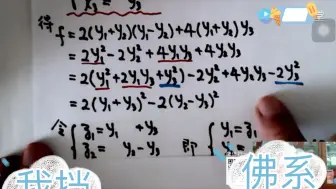 得
f = 2(y₁+y₂)(y₁-y₂) + 4(y₁+y₂)y₃
= 2y₁² - 2y₂² + 4y₁y₃ + 4y₂y₃
= 2(y₁² + 2y₁y₃ + y₃²) - 2y₂² + 4y₂y₃ - 2y₃²
= 2(y₁+y₃)² - 2(y₂-y₃)²
令 { z₁ = y₁ + y₃
z₂ = y₂ - y₃
即 { y₁ = z₁
y₂ =
我挡
佛系